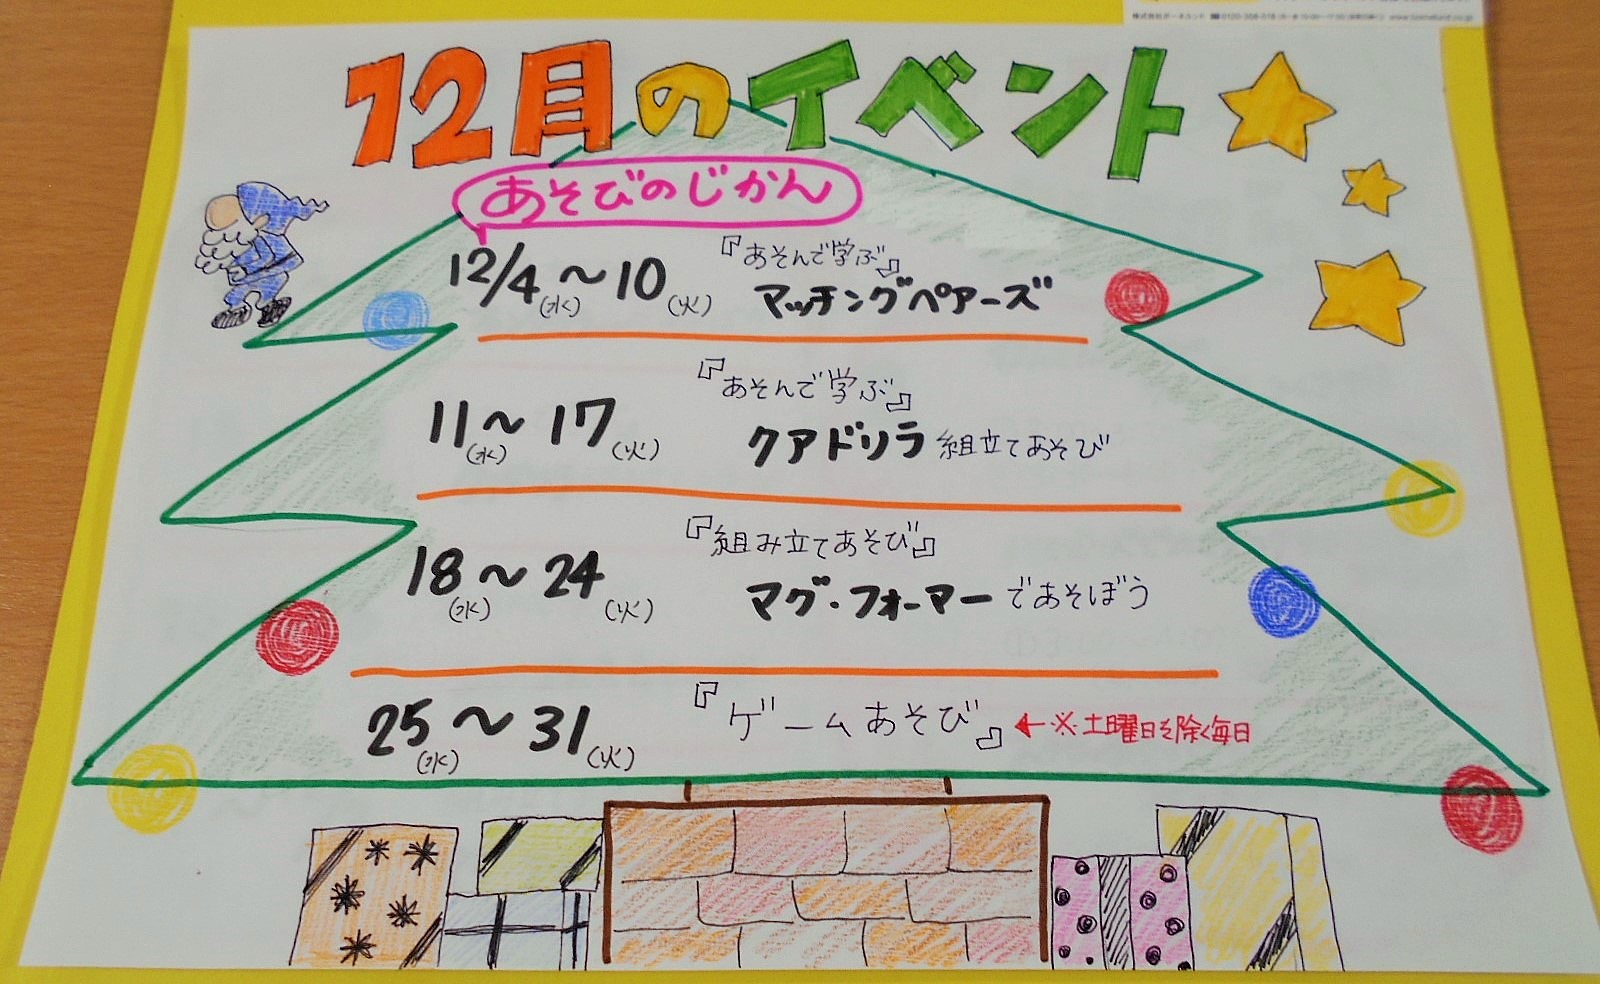 12月のイベント
あそびのじかん
12/4(水)～10(火) 『あそんで学ぶ』
マッチングペアーズ
11(水)～17(火) 『あそんで学ぶ』
クアドリラ 組立てあそび
18(水)～24(火) 『組み立てあそび』
マグ・フォーマーであそぼう
25(水)～31(火) 『ゲームあそび』 ←※土曜日を除く毎日